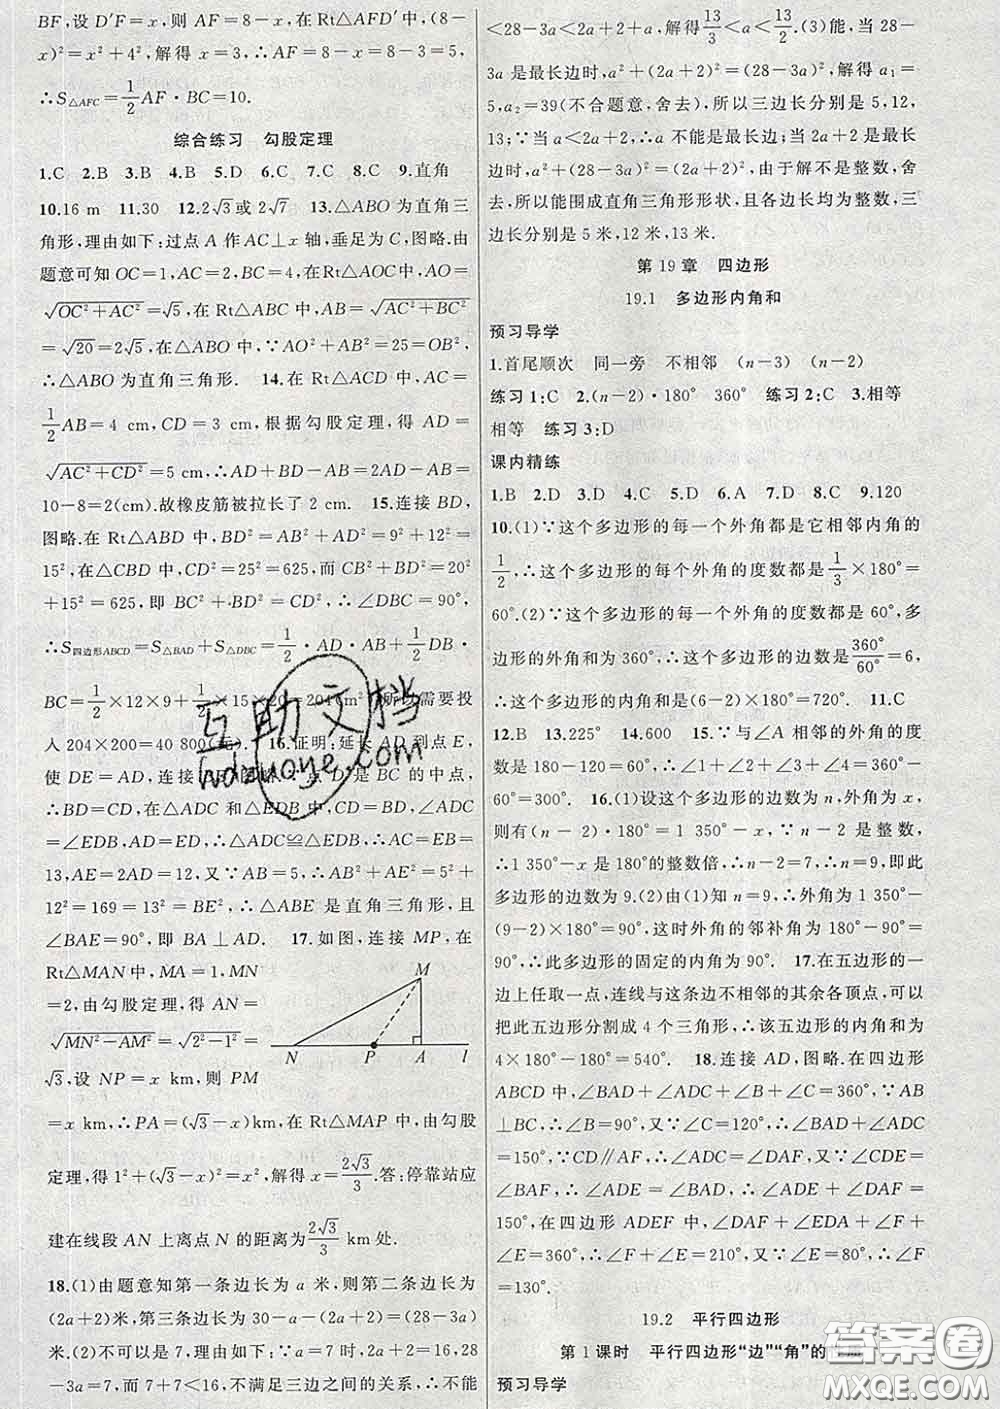 BF,设 D′F=x,则 AF=8-x,在 Rt△AFD′中,(8-
x)²=x²+4²,解得 x=3,∴AF=8-x=8-3=5,
∴S△AFC=1/2 AF·BC=10.
综合练习 勾股定理
1.C 2.B 3.B 4.B 5.D 6.C 7.C 8.C 9.直角
10.16 m 11.30 12.2√3或 2√7 13.△ABO 为直角三
角形,理由如下:过点 A 作 AC⊥x 轴,垂足为 C,图略.由
题意可知 OC=1,AC=2,BC=4,在 Rt△AOC 中,AO=
√(OC²+AC²)=√5,在 Rt△ABC 中,AB=√(AC²+BC²)
=√20=2√5,在△ABO 中,∵AO²+AB²=25=OB²,
∴△ABO 为直角三角形. 14.在 Rt△ACD 中,AC=
1/2 AB=4 cm,CD=3 cm,根据勾股定理,得 AD=
√(AC²+CD²)=5 cm,∴AD+BD-AB=2AD-AB=
10-8=2(cm).故橡皮筋被拉长了 2 cm. 15.连接 BD,
图略.在 Rt△ABD 中,BD²=AD²+AB²=9²+12²=
15²,在△CBD 中,CD²=25²=625,而 CB²+BD²=20²
+15²=625,即 BC²+BD²=CD²,∴∠DBC=90°,
∴S四边形ABCD=S△BAD+S△DBC=1/2·AD·AB+1/2 DB·
BC=1/2×12×9+1/2×15×20=204(m²).所以需要投
入 204×200=40 800(元). 16.证明:延长 AD 到点 E,
使 DE=AD,连接 BE,图略.∵点 D 是 BC 的中点,
∴BD=CD,在△ADC 和△EDB 中,CD=BD,∠ADC
=∠EDB,AD=ED,∴△ADC≌△EDB,∴AC=EB=
13,AE=2AD=12,又∵AB=5,∴AB²+AE²=5²+
12²=169=13²=BE²,∴△ABE 是直角三角形,且
∠BAE=90°,即 BA⊥AD. 17.如图,连接 MP,在
Rt△MAN 中,MA=1,MN
=2,由勾股定理,得 AN=
√(MN²-AM²)=√(2²-1²)=
√3,设 NP=x km,则 PM
M
N P A l
=x km,∴PA=(√3-x)km,在 Rt△MAP 中,由勾股
定理,得 1²+(√3-x)²=x²,解得 x=2√3/3.答:停靠站应
建在线段 AN 上离点 N 的距离为2√3/3 km处.
18.(1)由题意知第一条边长为 a 米,则第二条边长为
(2a+2)米,第三条边长为 30-a-(2a+2)=(28-3a)
米.(2)不可以是 7,理由如下:∵a=7,2a+2=16,28
-3a=7,而 7+7<16,不满足三边之间的关系,∴不能
<28-3a<2a+2+a,解得13/3<a<13/2.(3)能,当 28-
3a 是最长边时,a²+(2a+2)²=(28-3a)²,解得 a₁=
5,a₂=39(不合题意,舍去),所以三边长分别是 5,12,
13;∵当 a<2a+2,∴a 不能是最长边;当 2a+2 是最长
边时,a²+(28-3a)²=(2a+2)²,由于解不是整数,舍
去,所以能围成直角三角形形状,且各边长均为整数,三
边长分别是 5 米,12 米,13 米.
第 19 章 四边形
19.1 多边形内角和
预习导学
1.首尾顺次 同一旁 不相邻 (n-3) (n-2)
练习 1:C 2.(n-2)·180° 360° 练习 2:C 3.相等
相等 练习 3:D
课内精练
1.B 2.D 3.D 4.C 5.D 6.A 7.D 8.C 9.120
10.(1)∵这个多边形的每一个外角都是它相邻内角的
1/2,∴这个多边形的每个外角的度数都是1/3×180°=
60°.(2)∵这个多边形的每一个外角的度数都是 60°,多
边形的外角和为 360°,∴这个多边形的边数是360°/60°=6,
∴这个多边形的内角和是(6-2)×180°=720°. 11.C
12.B 13.225° 14.600 15.∵与∠A 相邻的外角的度
数是 180-120=60°,∴∠1+∠2+∠3+∠4=360°-
60°=300°. 16.(1)设这个多边形的边数为 n,外角为 x,
则有(n-2)×180°=1 350°-x,∵n-2 是整数,
∴1 350°-x 是 180°的整数倍,∴n-2=7,∴n=9,即此
多边形的边数为 9.(2)由(1)知 n=9,∴外角为 1 350°-
(9-2)×180°=90°,这时外角的邻补角为 180°-90°=
90°,∴此多边形的固定的内角为 90°. 17.在五边形的一
边上任取一点,连线与这条边不相邻的其余各顶点,可以
把此五边形分割成 4 个三角形,∴该五边形的内角和为
4×180°-180°=540°. 18.连接 AD,图略.在四边形
ABCD 中,∠BAD+∠ADC+∠B+∠C=360°,∵AB
⊥BC,∴∠B=90°,又∵∠C=120°,∴∠BAD+∠ADC
=150°,∵CD∥AF,∴∠ADC=∠DAF,又∵∠CDE=
∠BAF,∴∠ADE=∠BAD,∴∠ADE+∠DAF=
150°,在四边形 ADEF 中,∠DAF+∠EDA+∠F+
∠E=360°,∴∠F+∠E=210°,又∵∠E=80°,∴∠F
=130°.
19.2 平行四边形
第 1 课时 平行四边形“边”“角”的
预习导学
互助文档
hdzuoye.com
答案圈
MXQE.COM